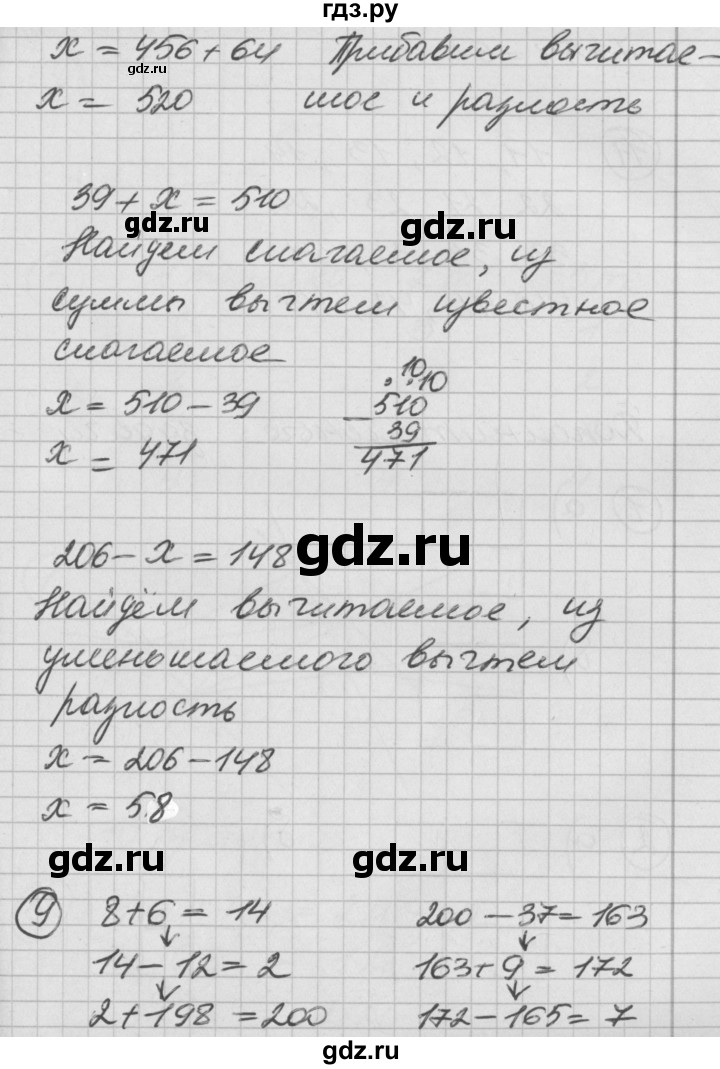 гдз.ру
x = 456 + 64 Прибавим вычитае-
gdz.ru
x = 520 мое и разность
39 + x = 510
gdz.ru gdz.ru
Найдем слагаемое, из
суммы вычтем известное
слагаемое
10
. . 10
x = 510 - 39 510
- 39
x = 471 471
206 - x = 148
gdz.ru
Найдём вычитаемое, из
уменьшаемого вычтем
разность
x = 206 - 148
x = 58
gdz.ru gdz.ru
9 8 + 6 = 14 200 - 37 = 163
14 - 12 = 2 163 + 9 = 172
2 + 198 = 200 172 - 165 = 7
gdz.ru